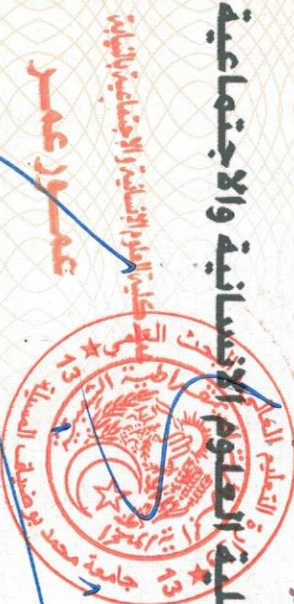 ية العلوم الإنسانية والاجتماعية
كلية العلوم الإنسانية والاجتماعية بالنيابة
عمـــور عمـــر
التعليم العالي البحث العلمي
جامعة محمد بوضياف المسيلة
13
13